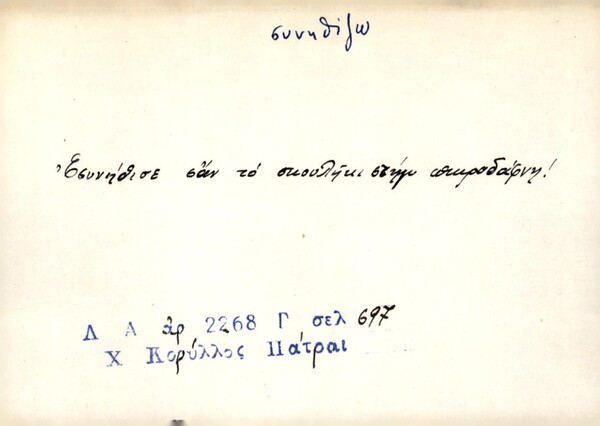 συνηθίζω
Ἐσυνήθισε σἄν τό σκουλῆκι στήν πικροδάφνη!
Λ Α ἀρ 2268 Γ σελ 697
Χ Κορύλλος Πάτραι